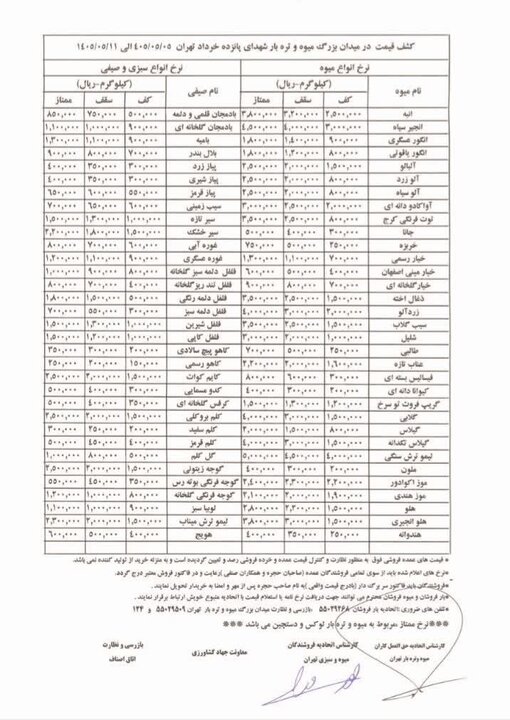 کشف قیمت در میدان بزرگ میوه و تره بار شهدای پانزده خرداد تهران ۴۰۵/۰۵/۰۵ الی ۱۴۰۵/۰۵/۱۱
نرخ انواع میوه نرخ انواع سبزی و صیفی
نام میوه (کیلوگرم-ریال) نام صیفی (کیلوگرم-ریال)
کف سقف ممتاز کف سقف ممتاز
انبه ۲,۵۰۰,۰۰۰ ۳,۲۰۰,۰۰۰ ۳,۸۰۰,۰۰۰ بادمجان قلمی و دلمه ۵۰۰,۰۰۰ ۷۵۰,۰۰۰ ۸۵۰,۰۰۰
انجیر سیاه ۳,۰۰۰,۰۰۰ ۴,۰۰۰,۰۰۰ ۴,۵۰۰,۰۰۰ بادمجان گلخانه ای ۹۰۰,۰۰۰ ۱,۰۰۰,۰۰۰ ۱,۱۰۰,۰۰۰
انگور عسگری ۹۰۰,۰۰۰ ۱,۴۰۰,۰۰۰ ۱,۸۰۰,۰۰۰ بامیه ۹۰۰,۰۰۰ ۱,۱۰۰,۰۰۰ ۱,۳۰۰,۰۰۰
انگور یاقوتی ۸۰۰,۰۰۰ ۱,۲۰۰,۰۰۰ ۱,۸۰۰,۰۰۰ بلال بندر ۷۰۰,۰۰۰ ۸۰۰,۰۰۰ ۹۰۰,۰۰۰
آلبالو ۱,۵۰۰,۰۰۰ ۲,۰۰۰,۰۰۰ ۲,۵۰۰,۰۰۰ پیاز زرد ۳۰۰,۰۰۰ ۳۵۰,۰۰۰ ۴۰۰,۰۰۰
آلو زرد ۸۰۰,۰۰۰ ۲,۰۰۰,۰۰۰ ۲,۵۰۰,۰۰۰ پیاز شیری ۳۰۰,۰۰۰ ۳۵۰,۰۰۰ ۴۰۰,۰۰۰
آلو سیاه ۸۰۰,۰۰۰ ۲,۰۰۰,۰۰۰ ۲,۵۰۰,۰۰۰ پیاز قرمز ۵۵۰,۰۰۰ ۶۰۰,۰۰۰ ۶۵۰,۰۰۰
آواکادو دانه ای ۲,۰۰۰,۰۰۰ ۲,۵۰۰,۰۰۰ سیب زمینی ۶۵۰,۰۰۰ ۶۰۰,۰۰۰ ۷۰۰,۰۰۰
توت فرنگی کرج ۸۰۰,۰۰۰ ۲,۵۰۰,۰۰۰ ۳,۵۰۰,۰۰۰ سیر تازه ۱,۰۰۰,۰۰۰ ۱,۳۰۰,۰۰۰ ۱,۵۰۰,۰۰۰
جانا ۳۰۰,۰۰۰ ۴۰۰,۰۰۰ ۵۰۰,۰۰۰ سیر خشک ۱,۵۰۰,۰۰۰ ۱,۸۰۰,۰۰۰ ۲,۲۰۰,۰۰۰
خربزه ۲۵۰,۰۰۰ ۵۰۰,۰۰۰ ۷۵۰,۰۰۰ غوره آبی ۶۰۰,۰۰۰ ۷۰۰,۰۰۰ ۸۰۰,۰۰۰
خیار رسمی ۷۰۰,۰۰۰ ۱,۱۰۰,۰۰۰ ۱,۳۰۰,۰۰۰ غوره عسگری ۹۰۰,۰۰۰ ۱,۱۰۰,۰۰۰ ۱,۲۰۰,۰۰۰
خیار مینی اصفهان ۴۰۰,۰۰۰ ۵۰۰,۰۰۰ ۶۰۰,۰۰۰ فلفل دلمه سبز گلخانه ۸۰۰,۰۰۰ ۹۰۰,۰۰۰ ۱,۰۰۰,۰۰۰
خیارگلخانه ای ۷۰۰,۰۰۰ ۸۰۰,۰۰۰ ۹۰۰,۰۰۰ فلفل تند ریزگلخانه ۴۰۰,۰۰۰ ۷۰۰,۰۰۰ ۸۰۰,۰۰۰
ذغال اخته ۱,۵۰۰,۰۰۰ ۲,۵۰۰,۰۰۰ ۳,۵۰۰,۰۰۰ فلفل دلمه رنگی ۱,۰۰۰,۰۰۰ ۱,۵۰۰,۰۰۰ ۱,۸۰۰,۰۰۰
زردآلو ۲,۰۰۰,۰۰۰ ۳,۰۰۰,۰۰۰ ۴,۰۰۰,۰۰۰ فلفل دلمه سبز ۳۰۰,۰۰۰ ۵۵۰,۰۰۰ ۷۰۰,۰۰۰
سیب گلاب ۱,۵۰۰,۰۰۰ ۲,۵۰۰,۰۰۰ ۳,۵۰۰,۰۰۰ فلفل شیرین ۱,۰۰۰,۰۰۰ ۱,۳۰۰,۰۰۰ ۱,۵۰۰,۰۰۰
شلیل ۱,۰۰۰,۰۰۰ ۲,۰۰۰,۰۰۰ ۳,۰۰۰,۰۰۰ فلفل کاپی ۱,۰۰۰,۰۰۰ ۱,۲۰۰,۰۰۰ ۱,۵۰۰,۰۰۰
طالبی ۲۵۰,۰۰۰ ۵۰۰,۰۰۰ ۷۰۰,۰۰۰ کاهو پیچ سالادی ۲۰۰,۰۰۰ ۳۰۰,۰۰۰ ۳۵۰,۰۰۰
عناب تازه ۱,۶۰۰,۰۰۰ ۲,۰۰۰,۰۰۰ ۲,۲۰۰,۰۰۰ کاهو رسمی ۱۵۰,۰۰۰ ۲۰۰,۰۰۰ ۲۵۰,۰۰۰
فیسالیس بسته ای ۳۰۰,۰۰۰ ۶۰۰,۰۰۰ ۸۰۰,۰۰۰ کلم کوات ۱,۵۰۰,۰۰۰ ۲,۰۰۰,۰۰۰ ۲,۵۰۰,۰۰۰
کیوانا دانه ای ۲۰۰,۰۰۰ ۳۰۰,۰۰۰ ۴۰۰,۰۰۰ کدو مسمایی ۳۰۰,۰۰۰ ۴۰۰,۰۰۰ ۵۰۰,۰۰۰
گریپ فروت تو سرخ ۱,۲۰۰,۰۰۰ ۱,۳۰۰,۰۰۰ ۱,۵۰۰,۰۰۰ کرفس گلخانه ای ۳۵۰,۰۰۰ ۴۰۰,۰۰۰ ۵۰۰,۰۰۰
گلابی ۱,۵۰۰,۰۰۰ ۳,۰۰۰,۰۰۰ ۴,۰۰۰,۰۰۰ کلم بروکلی ۱,۵۰۰,۰۰۰ ۲,۰۰۰,۰۰۰ ۲,۵۰۰,۰۰۰
گیلاس ۸۰۰,۰۰۰ ۱,۵۰۰,۰۰۰ ۲,۰۰۰,۰۰۰ کلم سفید ۲۰۰,۰۰۰ ۲۵۰,۰۰۰ ۳۰۰,۰۰۰
گیلاس تکدانه ۲,۰۰۰,۰۰۰ ۳,۰۰۰,۰۰۰ ۴,۰۰۰,۰۰۰ کلم قرمز ۴۰۰,۰۰۰ ۴۵۰,۰۰۰ ۵۰۰,۰۰۰
لیمو ترش سنگی ۴,۰۰۰,۰۰۰ ۴,۵۰۰,۰۰۰ ۵,۰۰۰,۰۰۰ گل کلم ۵۰۰,۰۰۰ ۸۰۰,۰۰۰ ۱,۰۰۰,۰۰۰
ملون ۲۰۰,۰۰۰ ۳۰۰,۰۰۰ ۴۰۰,۰۰۰ گوجه زیتونی ۱,۵۰۰,۰۰۰ ۲,۰۰۰,۰۰۰ ۲,۵۰۰,۰۰۰
موز اکوادور ۲,۲۰۰,۰۰۰ ۲,۳۰۰,۰۰۰ ۲,۴۰۰,۰۰۰ گوجه فرنگی بوته رس ۳۵۰,۰۰۰ ۴۵۰,۰۰۰ ۵۵۰,۰۰۰
موز هندی ۱,۹۰۰,۰۰۰ ۲,۰۰۰,۰۰۰ ۲,۱۰۰,۰۰۰ گوجه فرنگی گلخانه ۸۰۰,۰۰۰ ۱,۰۰۰,۰۰۰ ۱,۲۰۰,۰۰۰
هلو ۱,۵۰۰,۰۰۰ ۳,۰۰۰,۰۰۰ ۴,۰۰۰,۰۰۰ لوبیا سبز ۸۰۰,۰۰۰ ۱,۰۰۰,۰۰۰
هلو انجیری ۱,۵۰۰,۰۰۰ ۳,۰۰۰,۰۰۰ ۳,۸۰۰,۰۰۰ لیمو ترش میناب ۱,۵۰۰,۰۰۰ ۲,۰۰۰,۰۰۰ ۲,۳۰۰,۰۰۰
هندوانه ۲۵۰,۰۰۰ ۳۵۰,۰۰۰ ۴۰۰,۰۰۰ هویج ۴۰۰,۰۰۰ ۵۰۰,۰۰۰ ۶۰۰,۰۰۰
* قیمت های عمده فروشی فوق به منظور نظارت و کنترل قیمت عمده و خرده فروشی رصد و تعیین گردیده است و به منزله خرید از تولید کننده نمی باشد.
*نرخ های اعلام شده باید از سوی تمامی فروشندگان عمده (صاحبان حجره و همکاران صنفی) رعایت و در فاکتور فروش معتبر درج گردد.
*فروشندگان باید فاکتور سر برگ دار (بادرج قیمت واقعی) به نام صاحب حجره پس از مهر و امضا به خریدار تحویل نمایند.
*بار فروشان و میوه فروشان محترم می توانند جهت دریافت نرخ نامه با استعلام قیمت با اتحادیه متبوع خویش ارتباط برقرار نمایند.
*تلفن های ضروری : اتحادیه بار فروشان ۵۵۰۲۹۲۶۸ بازرسی و نظارت میدان بزرگ میوه و تره بار تهران ۵۵۰۲۹۵۰۹ و ۱۲۴
***نرخ ممتاز مربوط به میوه و تره بار لوکس و دستچین می باشد***
کارشناس اتحادیه حق العمل کاران کارشناس اتحادیه فروشندگان معاونت جهاد کشاورزی بازرسی و نظارت
میوه و تره بار تهران میوه و سبزی تهران اتاق اصناف